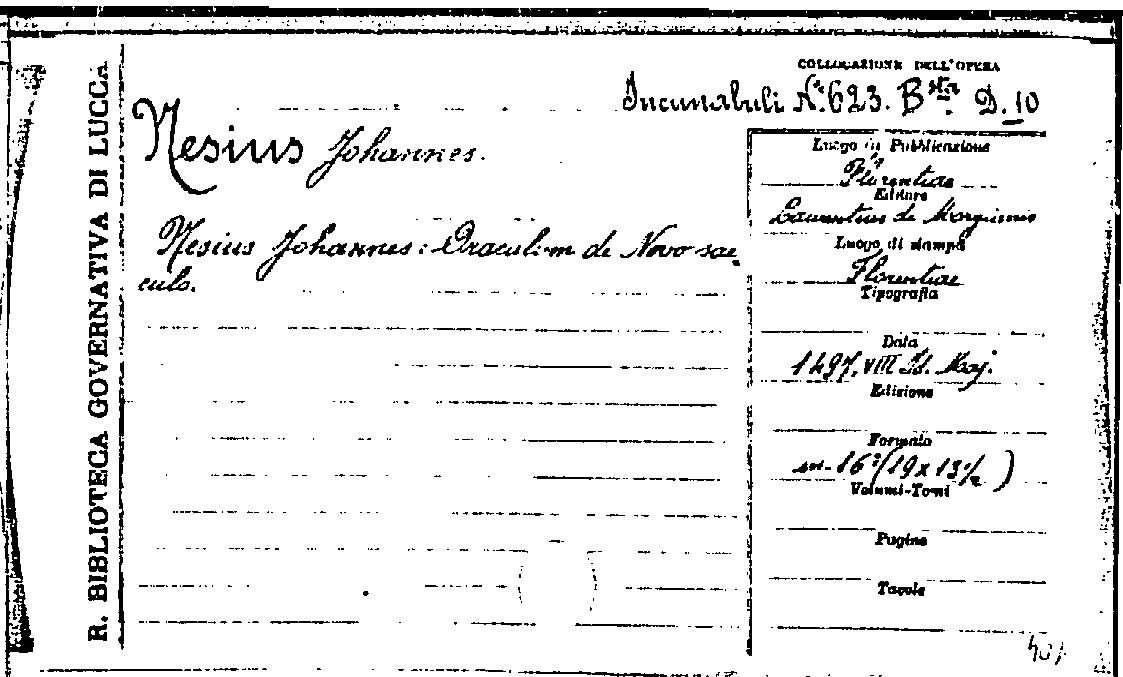 R. BIBLIOTECA GOVERNATIVA DI LUCCA
COLLOCAZIONE DELL'OPERA
Incunabuli N.° 623. B.sta D. 10
Nesius Johannes.
Nesius Johannes: Oraculum de Novo sae-
culo.
Luogo di Pubblicazione
Florentiae
Editore
Laurentius de Morgianis
Luogo di stampa
Florentiae
Tipografia
Data
1497. VIII Id. Maj.
Edizione
Formato
in-16° (19 x 13 1/2)
Volumi-Tomi
Pagine
Tavole